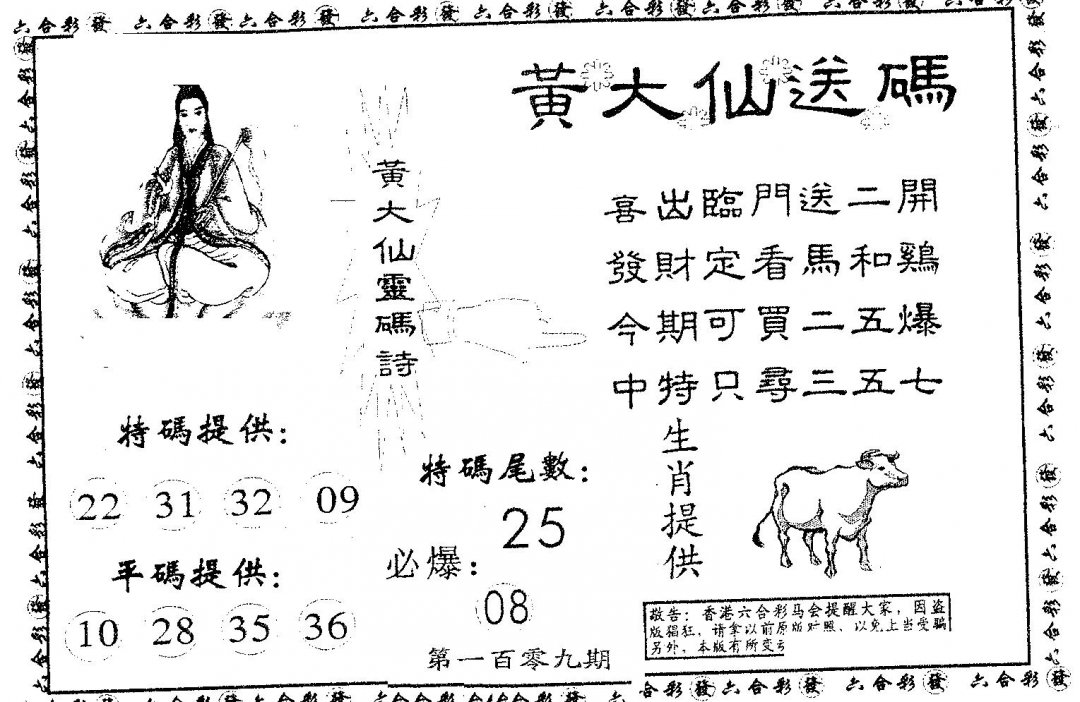 六合彩發 六合彩發 六合彩發 六合彩發 六合彩發 六合彩發 六合彩發 六合彩發 六合彩發
黃大仙送碼
黃大仙靈碼詩
喜出臨門送二開
發財定看馬和鷄
今期可買二五爆
中特只尋三五七
特碼提供：
22 31 32 09
平碼提供：
10 28 35 36
特碼尾數：
25
必爆：
08
第一百零九期
生肖提供
敬告：香港六合彩马会提醒大家，因盗
版猖狂，请拿以前原版对照，以免上当受骗
另外，本版有所变
六合彩發 六合彩發 六合彩發 六合彩發